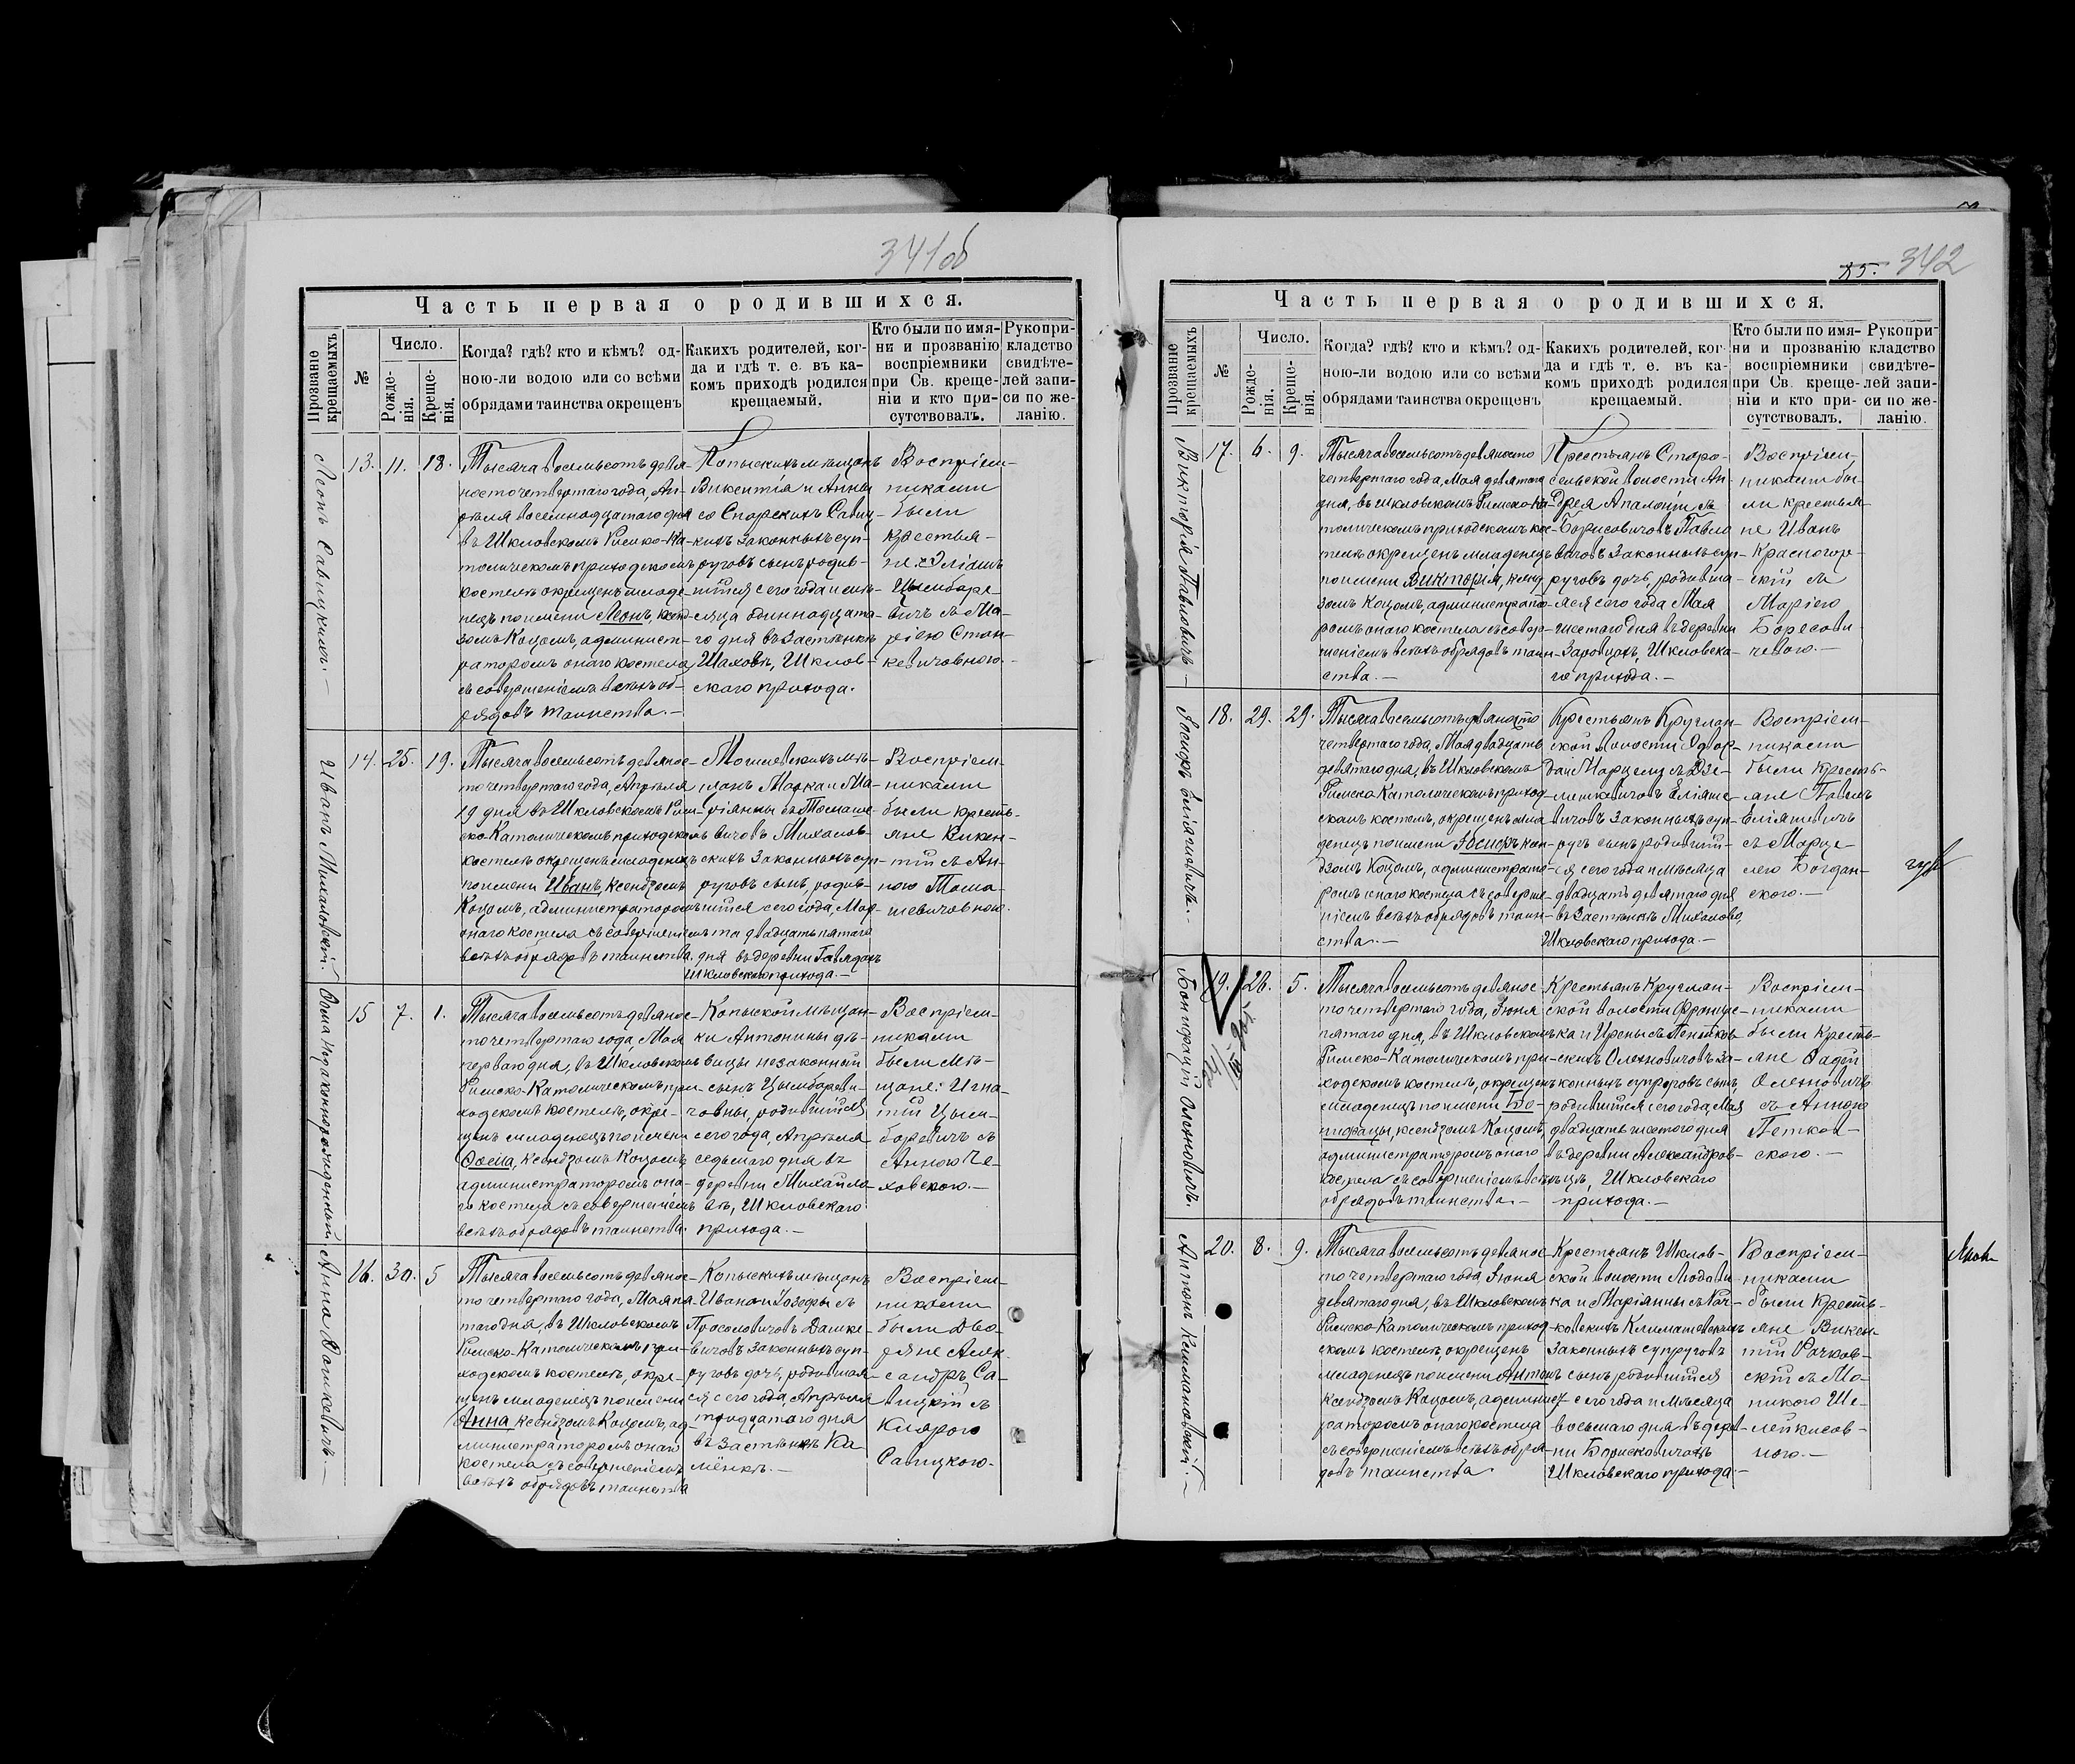 341об
Часть первая о родившихся.
Прозваніе крещаемыхъ
№
Число.
Рожде-
нія.
Креще-
нія.
Когда? гдѣ? кто и кѣмъ? од-
ною-ли водою или со всѣми
обрядами таинства окрещенъ
Какихъ родителей, ког-
да и гдѣ т. е. въ ка-
комъ приходѣ родился
крещаемый.
Кто были по имя-
ни и прозванію
воспріемники
при Св. креще-
ніи и кто при-
сутствовалъ.
Рукопри-
кладство
свидѣте-
лей запи-
си по же-
ланію.
Леонъ Савицкій.—
13. 11. 18.
Тысяча восемьсотъ девя-
носто четвертаго года, Ап-
рѣля восемнадцатаго дня
въ Шкловскомъ Римско-Ка-
толическомъ приходскомъ
костелѣ окрещенъ младе-
нецъ по имени Леонъ, ксен-
дзомъ Коцомъ, админист-
раторомъ онаго костела
съ совершеніемъ всѣхъ об-
рядовъ таинства.—
Копыскихъ мѣщанъ
Викентія и Анны
со Спорскихъ Савиц-
кихъ законныхъ суп-
руговъ сынъ, родив-
шійся сего года и мѣ-
сяца одиннадцата-
го дня въ застѣнкѣ
Шаховѣ, Шклов-
скаго прихода.
Воспріем-
никами
были
крестья-
не: Эліашъ
Цымбаре-
вичъ съ Ма-
ріею Стан-
кевичовною.—
Иванъ Михаловскій.
14. 25. 19.
Тысяча восемьсотъ девянос-
то четвертаго года, Апрѣля
19 дня въ Шкловскомъ Рим-
ско-Католическомъ приходскомъ
костелѣ окрещенъ младенецъ
по имени Иванъ, ксендзомъ
Коцомъ, администраторомъ
онаго костела съ совершеніемъ
всѣхъ обрядовъ таинства.
Могилевскихъ мѣ-
щанъ Марка и Ма-
ріанны съ Томаше-
вичовъ Михалов-
скихъ законныхъ суп-
руговъ сынъ, родив-
шійся сего года, Мар-
та двадцать пятаго
дня въ деревни
Шкловскаго прихода.—
Воспріем-
никами
были кресть-
яне Викен-
тій съ Ан-
ною Тома-
шевичовною.
Ѳома Незаконнорожденный
15 7. 1.
Тысяча восемьсотъ девянос-
то четвертаго года, Мая
перваго дня, въ Шкловскомъ
Римско-Католическомъ при-
ходскомъ костелѣ, окре-
щенъ младенецъ по имени
Ѳома, ксендзомъ Коцомъ,
администраторомъ она-
го костела съ совершеніемъ
всѣхъ обрядовъ таинства.
Копыской мѣщан-
ки Антонины дѣ-
вицы незаконный
сынъ Цымбареви-
човны, родившійся
сего года, Апрѣля
седьмаго дня въ
деревни Михайло-
вѣ, Шкловскаго
прихода.—
Воспріем-
никами
были мѣ-
щане: Игна-
тій Цым-
боревичъ съ
Анною Че-
ховскою.—
Анна Дашкевичъ.—
16. 30. 5
Тысяча восемьсотъ девянос-
то четвертаго года, Мая пя-
таго дня, въ Шкловскомъ
Римско-Католическомъ при-
ходскомъ костелѣ, окре-
щенъ младенецъ по имени
Анна ксендзомъ Коцомъ, ад-
министраторомъ онаго
костела съ совершеніемъ
всѣхъ обрядовъ таинства
Копыскихъ мѣщанъ
Ивана и Іозефы съ
Просоловичовъ Дашке-
вичовъ законныхъ суп-
руговъ дочь, родившая-
ся сего года, Апрѣля
тридцатаго дня
въ застѣнкѣ Ка-
мёнкѣ.—
Воспріем-
никами
были Дво-
ряне Алек-
сандръ Са-
вицкій съ
Клярою
Савицкою.
85. 342
Часть первая о родившихся.
Прозваніе крещаемыхъ
№
Число.
Рожде-
нія.
Креще-
нія.
Когда? гдѣ? кто и кѣмъ? од-
ною-ли водою или со всѣми
обрядами таинства окрещенъ
Какихъ родителей, ког-
да и гдѣ т. е. въ ка-
комъ приходѣ родился
крещаемый.
Кто были по имя-
ни и прозванію
воспріемники
при Св. креще-
ніи и кто при-
сутствовалъ.
Рукопри-
кладство
свидѣте-
лей запи-
си по же-
ланію.
Викторія Павловичъ—
17. 6. 9.
Тысяча восемьсотъ девяносто
четвертаго года, Мая девятаго
дня, въ Шкловскомъ Римско-Ка-
толическомъ приходскомъ кос-
телѣ окрещенъ младенецъ
по имени Викторія, ксенд-
зомъ Коцомъ, администрато-
ромъ онаго костела съ совер-
шеніемъ всѣхъ обрядовъ таин-
ства.—
Крестьянъ Старо-
сельской волости Ан-
дрея Апалоніи съ
Борисовичовъ Павло-
вичовъ законныхъ суп-
руговъ дочь, родивша-
яся сего года Мая
шестаго дня въ деревни
Заровцахъ, Шкловска-
го прихода.—
Воспріем-
никами бы-
ли крестья-
не Иванъ
Красногор-
скій съ
Маріею
Борисови-
чевою.—
Іосифъ Еліяшевичъ.
18. 29. 29.
Тысяча восемьсотъ девяносто
четвертаго года, Мая двадцать
девятаго дня, въ Шкловскомъ
Римско Католическомъ приход-
скомъ костелѣ, окрещенъ мла-
денецъ по имени Іосифъ ксен-
дзомъ Коцомъ, администрато-
ромъ онаго костела съ соверше-
ніемъ всѣхъ обрядовъ таин-
ства.—
Крестьянъ Круглян-
ской волости Эдвар-
да и Марцели съ Дзе-
мешкевичовъ Еліяше-
вичовъ законныхъ суп-
ругъ сынъ родивший-
ся сего года и мѣсяца
двадцать девятаго дня
въ застѣнкѣ Михалово,
Шкловскаго прихода.—
Воспріем-
никами
были Кресть-
яне Павелъ
Еліяшевичъ
съ Марце-
лею Богдан-
скою.—
Бонифацій Олехновичъ.
19. 26. 5.
Тысяча восемьсотъ девянос-
то четвертаго года, Іюня
пятаго дня, въ Шкловскомъ
Римско-Католическомъ при-
ходскомъ костелѣ, окрещенъ
младенецъ по имени Бо-
нифацы, ксендзомъ Коцомъ,
администраторомъ онаго
костела съ совершеніемъ всѣхъ
обрядовъ таинства.—
Крестьянъ Круглян-
ской волости Францис-
ка и Ирены съ Петков-
скихъ Олехновичовъ за-
конныхъ супруговъ сынъ
родившійся сего года, Мая
двадцать шестого дня
въ деревни Александров-
цѣ, Шкловскаго
прихода.—
Воспріем-
никами
были Кресть-
яне Фадей
Олехновичъ
съ Анною
Петков-
скою.—
Антонъ Климашевскій.—
20. 8. 9.
Тысяча восемьсотъ девянос-
то четвертаго года, Іюня
девятаго дня, въ Шкловскомъ
Римско-Католическомъ приход-
скомъ костелѣ, окрещенъ
младенецъ по имени Антонъ
ксендзомъ Коцомъ, админист-
раторомъ онаго костела
съ совершеніемъ всѣхъ обря-
довъ таинства.
Крестьянъ Шклов-
ской волости Людви-
ка и Маріанны съ Рач-
ковскихъ Климашевскихъ
законныхъ супруговъ
сынъ родившійся
сего года и мѣсяца
восьмаго дня въ дерев-
ни Борисковичахъ
Шкловскаго прихода—
Воспріем-
никами
были Кресть-
яне Викен-
тій Рачков-
скій съ Мо-
никою Ше-
лейкисов-
ною.—